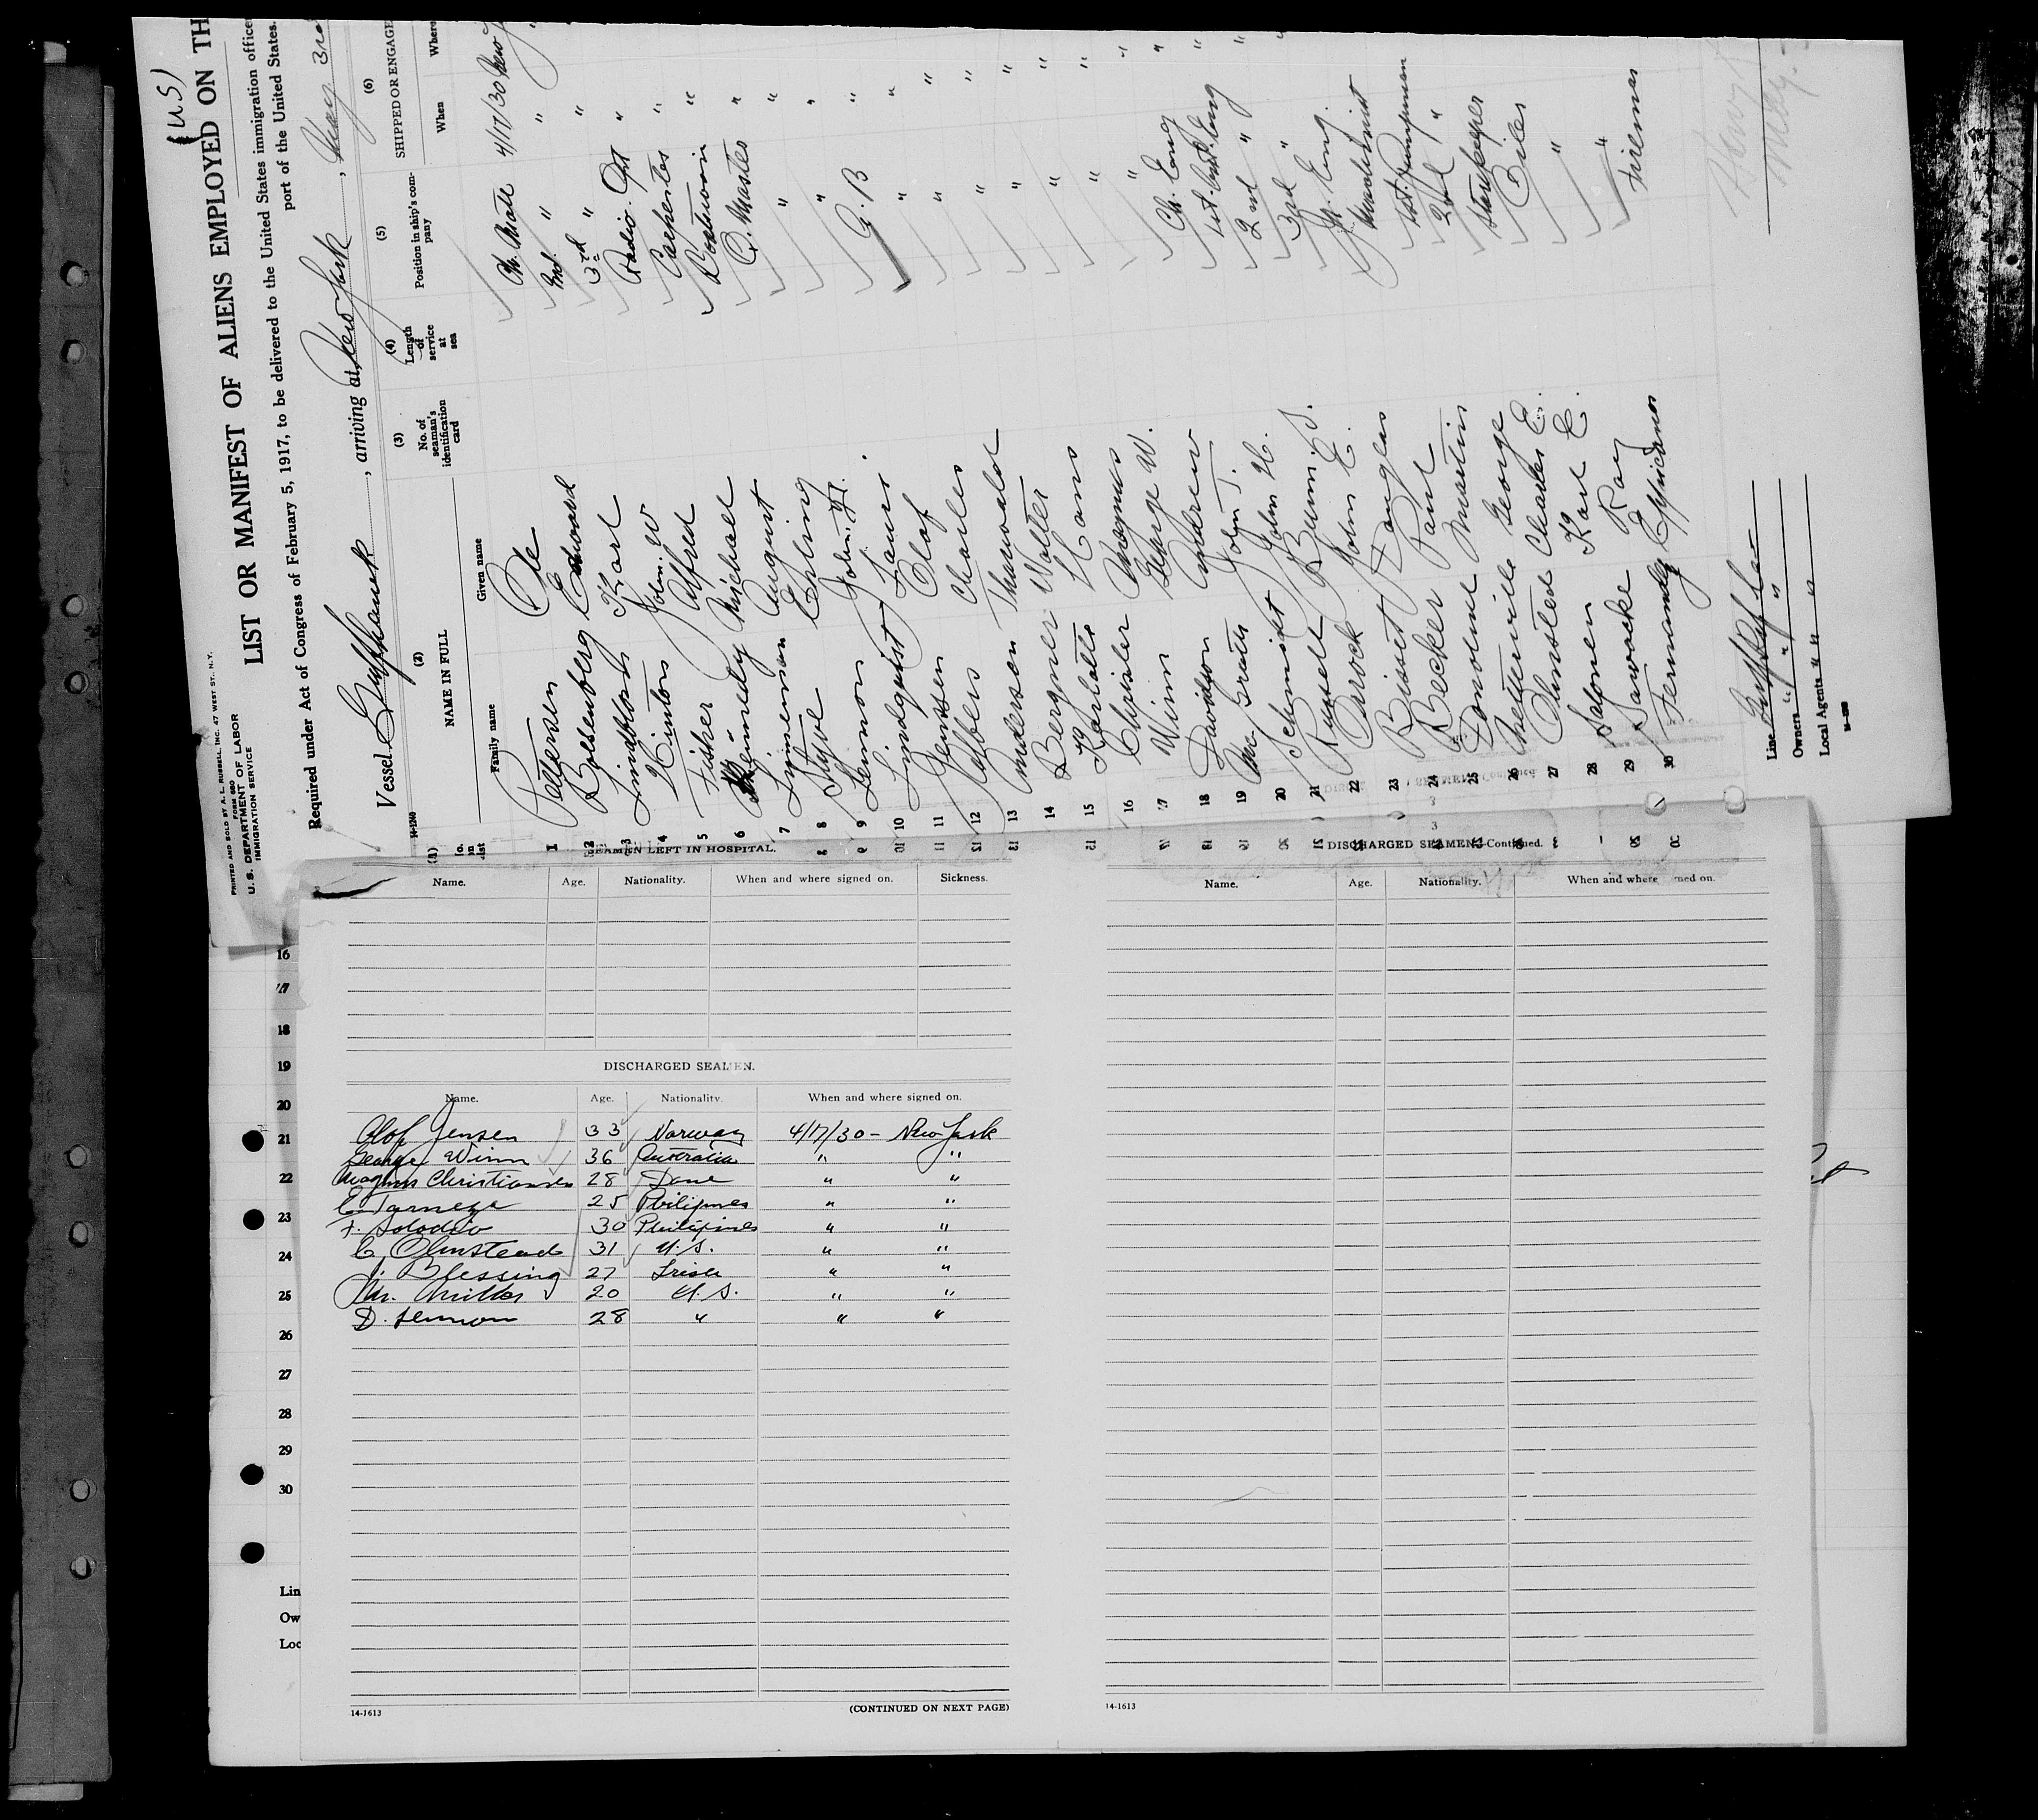 (U.S)
PRINTED AND SOLD BY A. L. RUSSELL, INC. 47 WEST ST., N.Y.
FORM 680
U. S. DEPARTMENT OF LABOR
IMMIGRATION SERVICE
LIST OR MANIFEST OF ALIENS EMPLOYED ON TH
Required under Act of Congress of February 5, 1917, to be delivered to the United States immigration office
port of the United States.
Vessel Gulfhawk, arriving at New York, May 3rd
14-1240
(1) (2) (3) (4) (5) (6)
NAME IN FULL No. of seaman's identification card Length of service at sea Position in ship's company SHIPPED OR ENGAGE
Family name Given name When Where
1 Petersen Ole Ch. Mate 4/17/30 New
2 Bolsenberg Edward 2nd " "
3 Lindblom Karl 3rd " "
4 Hinton John W Radio Opt "
5 Fisher Alfred Carpenter "
6 Kennedy Michael Boatswain "
7 Lynneman August Q. Master "
8 Styve Erling " "
9 Lennon John H. " "
10 Lindquist Lauri "
11 Jensen Olaf " "
12 Ebbers Charles " "
13 Anderson Thorwald " "
14 Bergner Walter " "
15 Hans " "
16 Magnus " "
17 Winn George W. " "
18 Davidson Andrew Ch. Eng "
19 McGrath John J. 1st. Asst. Eng "
20 Schmidt John H. 2nd " "
21 Russell 3rd " "
22 Brock John E. Jr. Eng.
23 Bisset Douglas Machinist
24 Becker Paul 1st. Pumpman
25 Martin 2nd "
26 George Storekeeper
27 Olmsted Charles E. Oiler
28 Salonen Karl E. "
29 Sawocke Ray "
30 Fernandez Fireman
Line Gulf Ref Co
Owners " " "
Local Agents " " "
SEAMEN LEFT IN HOSPITAL.
Name. Age. Nationality. When and where signed on. Sickness.
DISCHARGED SEAMEN.
Name. Age. Nationality. When and where signed on.
Olof Jensen 33 Norway 4/17/30 - New York
George Winn 36 Australia " "
Magnus Christiansen 28 Dane " "
E. 25 Philipines " "
F. 30 Philipines " "
C. Olmstead 31 U.S. " "
J. Blessing 27 Irish " "
Miller 20 U.S. " "
D. Lennon 28 " " "
(CONTINUED ON NEXT PAGE)
14-1613
DISCHARGED SEAMEN—Continued.
Name. Age. Nationality. When and where signed on.
14-1613
16
17
18
19
20
21
22
23
24
25
26
27
28
29
30
Lin
Ow
Loc